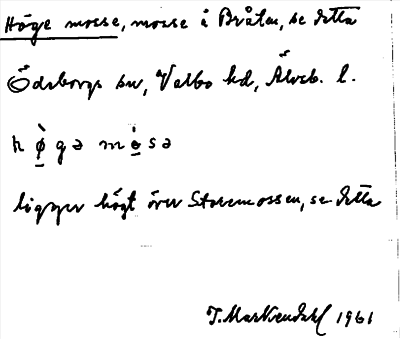 Höge mosse, mosse i Bråten, se detta
Ödeborgs sn, Valbo hd, Älvsb. l.
h ø̀ g ə m ò s ə
ligger högt över Storemossen, se detta
T. Markendahl 1961